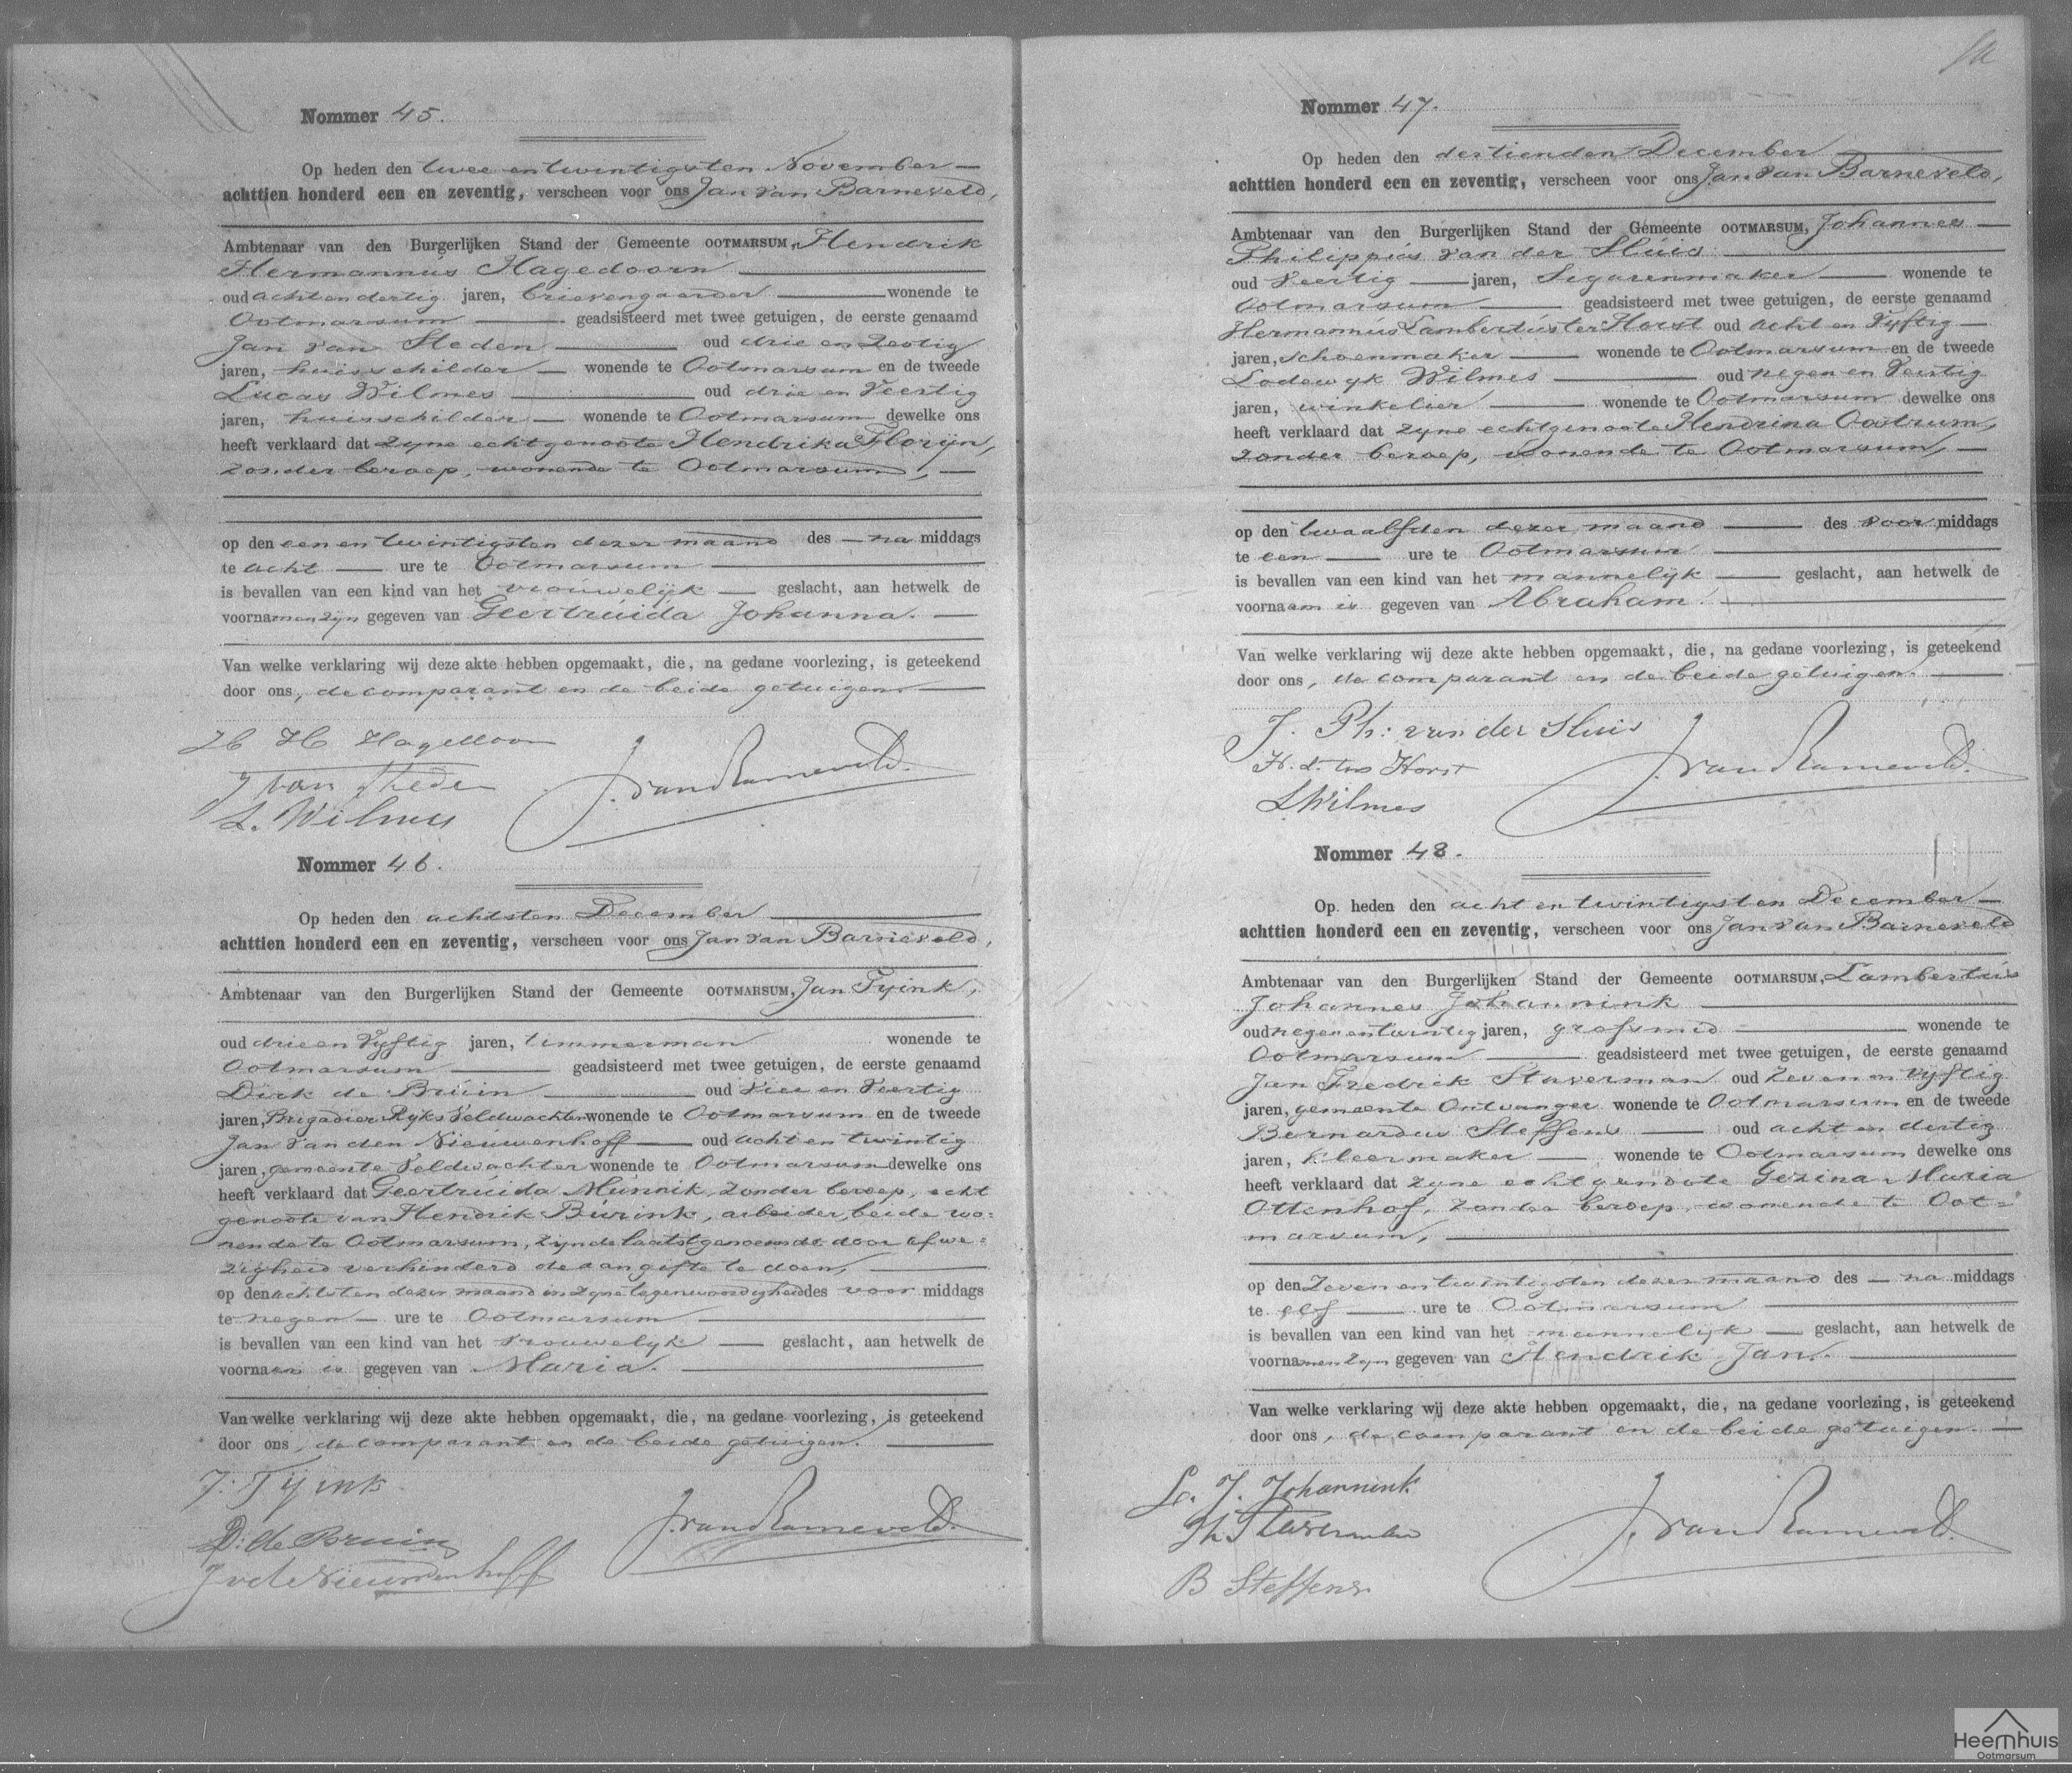 Nommer 45.
Op heden den twee en twintigsten November
achttien honderd een en zeventig, verscheen voor ons Jan van Barneveld,
Ambtenaar van den Burgerlijken Stand der Gemeente OOTMARSUM, Hendrik
Hermannus Hagedoorn
oud acht en dertig jaren, brievengaarder wonende te
Ootmarsum geadsisteerd met twee getuigen, de eerste genaamd
Jan van Sleden oud drie en zestig
jaren, huisschilder wonende te Ootmarsum en de tweede
Lucas Wilmes oud drie en veertig
jaren, huisschilder wonende te Ootmarsum dewelke ons
heeft verklaard dat zyne echtgenoote Hendrika Florijn,
zonder beroep, wonende te Ootmarsum,
op den een en twintigsten dezer maand des na middags
te acht ure te Ootmarsum
is bevallen van een kind van het vrouwelijk geslacht, aan hetwelk de
voornamen zijn gegeven van Geertruida Johanna.
Van welke verklaring wij deze akte hebben opgemaakt, die, na gedane voorlezing, is geteekend
door ons, de comparant en de beide getuigen.
H H Hagedoorn
J van Sleden
L. Wilmes
J. van Barneveld.
Nommer 46.
Op heden den achtsten December
achttien honderd een en zeventig, verscheen voor ons Jan van Barneveld,
Ambtenaar van den Burgerlijken Stand der Gemeente OOTMARSUM, Jan Tyink,
oud drie en vyftig jaren, timmerman wonende te
Ootmarsum geadsisteerd met twee getuigen, de eerste genaamd
Dirk de Bruin oud vier en veertig
jaren, Brigadier Ryks Veldwachter wonende te Ootmarsum en de tweede
Jan van den Nieuwenhoff oud acht en twintig
jaren, gemeente veldwachter wonende te Ootmarsum dewelke ons
heeft verklaard dat Geertruida Munnik, zonder beroep, echt
genoote van Hendrik Burink, arbeider, beide wo=
nende te Ootmarsum, zijnde laatstgenoemde door afwe=
zigheid verhinderd de aangifte te doen,
op den achtsten dezer maand in zyne tegenwoordigheid des voor middags
te negen ure te Ootmarsum
is bevallen van een kind van het vrouwelyk geslacht, aan hetwelk de
voornaam is gegeven van Maria.
Van welke verklaring wij deze akte hebben opgemaakt, die, na gedane voorlezing, is geteekend
door ons, de comparant en de beide getuigen.
J. Tyink
D: de Bruin
J vd Nieuwenhoff
J. van Barneveld.
Nommer 47.
Op heden den dertienden December
achttien honderd een en zeventig, verscheen voor ons Jan van Barneveld,
Ambtenaar van den Burgerlijken Stand der Gemeente OOTMARSUM, Johannes
Philippus van der Sluis
oud veertig jaren, Segarenmaker wonende te
Ootmarsum geadsisteerd met twee getuigen, de eerste genaamd
Hermannus Lambertus ter Horst oud acht en vyftig
jaren, schoenmaker wonende te Ootmarsum en de tweede
Lodewyk Wilmes oud negen en veertig
jaren, winkelier wonende te Ootmarsum dewelke ons
heeft verklaard dat zyne echtgenoote Hendrina Oostrum,
zonder beroep, wonende te Ootmarsum,
op den twaalfden dezer maand des voor middags
te een ure te Ootmarsum
is bevallen van een kind van het mannelijk geslacht, aan hetwelk de
voornaam is gegeven van Abraham.
Van welke verklaring wij deze akte hebben opgemaakt, die, na gedane voorlezing, is geteekend
door ons, de comparant en de beide getuigen.
J. Ph: van der Sluis
H. L. ter Horst
L Wilmes
J. van Barneveld.
Nommer 48.
Op heden den acht en twintigsten December
achttien honderd een en zeventig, verscheen voor ons Jan van Barneveld
Ambtenaar van den Burgerlijken Stand der Gemeente OOTMARSUM, Lambertus
Johannes Johannink
oud negen en twintig jaren, grofsmid wonende te
Ootmarsum geadsisteerd met twee getuigen, de eerste genaamd
Jan Fredrik Staverman oud zeven en vyftig
jaren, gemeente Ontvanger wonende te Ootmarsum en de tweede
Bernardus Steffens oud acht en dertig
jaren, kleermaker wonende te Ootmarsum dewelke ons
heeft verklaard dat zyne echtgenoote Gezina Maria
Ottenhof, zonder beroep, wonende te Oot=
marsum,
op den zeven en twintigsten dezer maand des na middags
te elf ure te Ootmarsum
is bevallen van een kind van het mannelijk geslacht, aan hetwelk de
voornamen zyn gegeven van Hendrik Jan.
Van welke verklaring wij deze akte hebben opgemaakt, die, na gedane voorlezing, is geteekend
door ons, de comparant en de beide getuigen.
L. J. Johannink
Staverman
B Steffens
J. van Barneveld.
Heemhuis
Ootmarsum